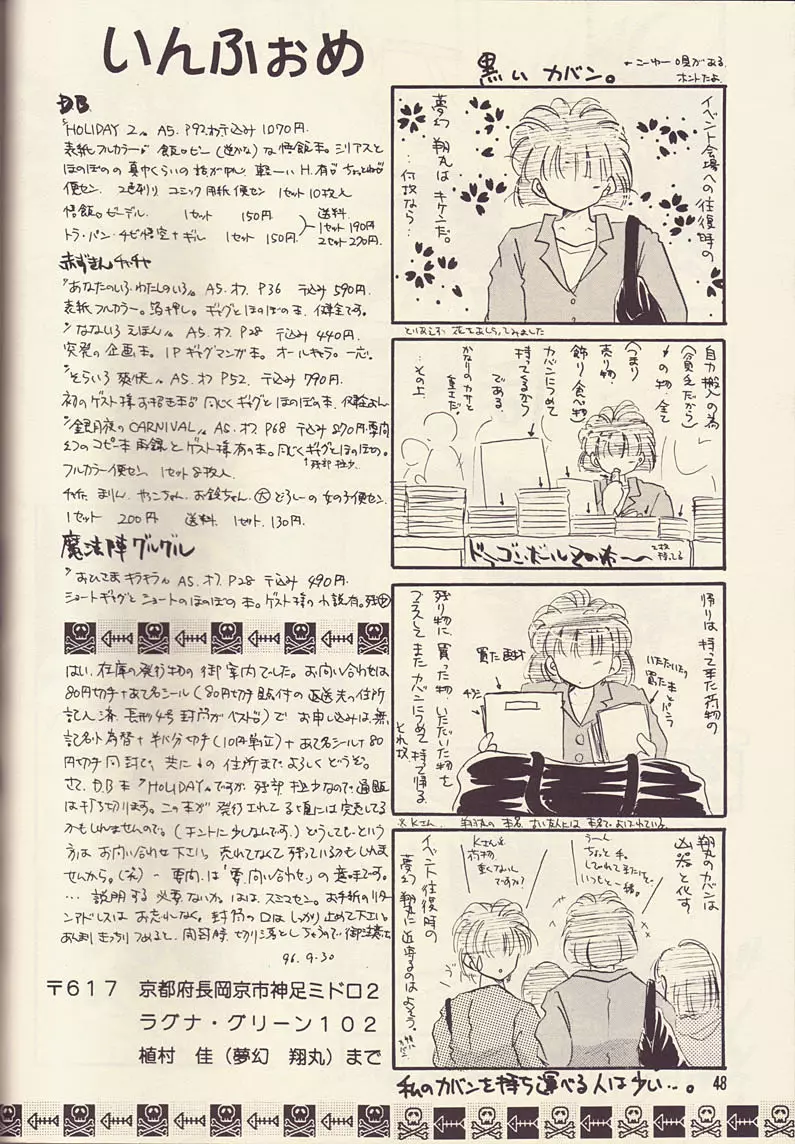 いんふぉめ
D.B.
"HOLIDAY 2" A5. P92. 〒込み 1070円.
便セン. 2色刷り コミック用紙便セン 1セット10枚入
1セット 150円
送料
1セット190円
トラ・パン・チビ悟空+ギル 1セット 150円.
2セット270円.
赤ずきんチャチャ
"あなたのいろ わたしのいろ" A5. オフ. P36 〒込み 590円.
表紙フルカラー。箔押し。ギャグとほのぼの本. 健全です。
"なないろ えほん" A5. オフ. P28 〒込み 440円.
突発の企画本。1Pギャグマンガ本。オールキャラ。一応。
"そらいろ 爽快" A5. オフ P52. 〒込み 790円.
"銀月夜の CARNIVAL" A5. オフ. P68 〒込み 870円. 要問
幻のコピー本 再録と ゲスト様有の本。同じくギャグとほのぼの。
フルカラー便セン. 1セット8枚入.
1セット 200円 送料. 1セット. 130円.
魔法陣グルグル
"おひさま キラキラ" A5. オフ. P28 〒込み 490円.
ショートギャグと ショートのほのぼの 本。ゲスト様の小説有。残少
はい. 在庫の発行物の御案内でした。お問い合わせは
80円切手+あて名シール(80円切手貼付の返送先の住所
記入済. 長形4号封筒がベスト)で お申し込みは. 無
記名小為替+半ぱ分切手(10円単位)+あて名シール+80
円切手同封で. 共に↓の住所まで. よろしくどうぞ。
さて. D.B本"HOLIDAY"ですが 残部極少なので. 通販
は打ち切ります。この本が発行されてる頃には完売してる
かもしれませんので。(ホントに少しなんです。)どうしてもという
方は お問い合わせ下さい。売れてなくて残っているかもしれま
せんから。(笑) - 要問は「要.問い合わせ」の意味です。
…説明する必要ないか。はは. スミマセン。お手紙のリター
ンアドレスは お忘れなく。封筒の口は しっかり止めて下さい。
96.9.30
〒617 京都府長岡京市神足ミドロ2
ラグナ・グリーン102
植村 佳(夢幻 翔丸)まで
黒い カバン。
ホントだよ
イベント会場への往復時の
夢幻 翔丸は キケンだ。
…何故なら…
とりあえず 花であしらってみました
自力搬入の為
(貧乏だから)
↓の物. 全て
(つまり
売り物
飾り(食べ物)
カバンにつめて
持ってくるから
である。
かなりのカサと
重さだ。
…その上.
ドラゴンボールその本〜
帰りは 持って来た荷物の
残り物に. 買った物. いただいた物を
プラスして またカバンにつめて 持って帰る.
それ故
買った画材
チラシ
いただいたり
買った本とパンフ
翔丸のカバンは
凶器と化す
Kさん
荷物.
重くないん
ですか?
うーん
ちょっと 手.
しびれてきたけど…
いつもと一緒。
イベント往復時の
夢幻 翔丸に近寄るのはよそう。
私のカバンを持ち運べる人は少い…。
48